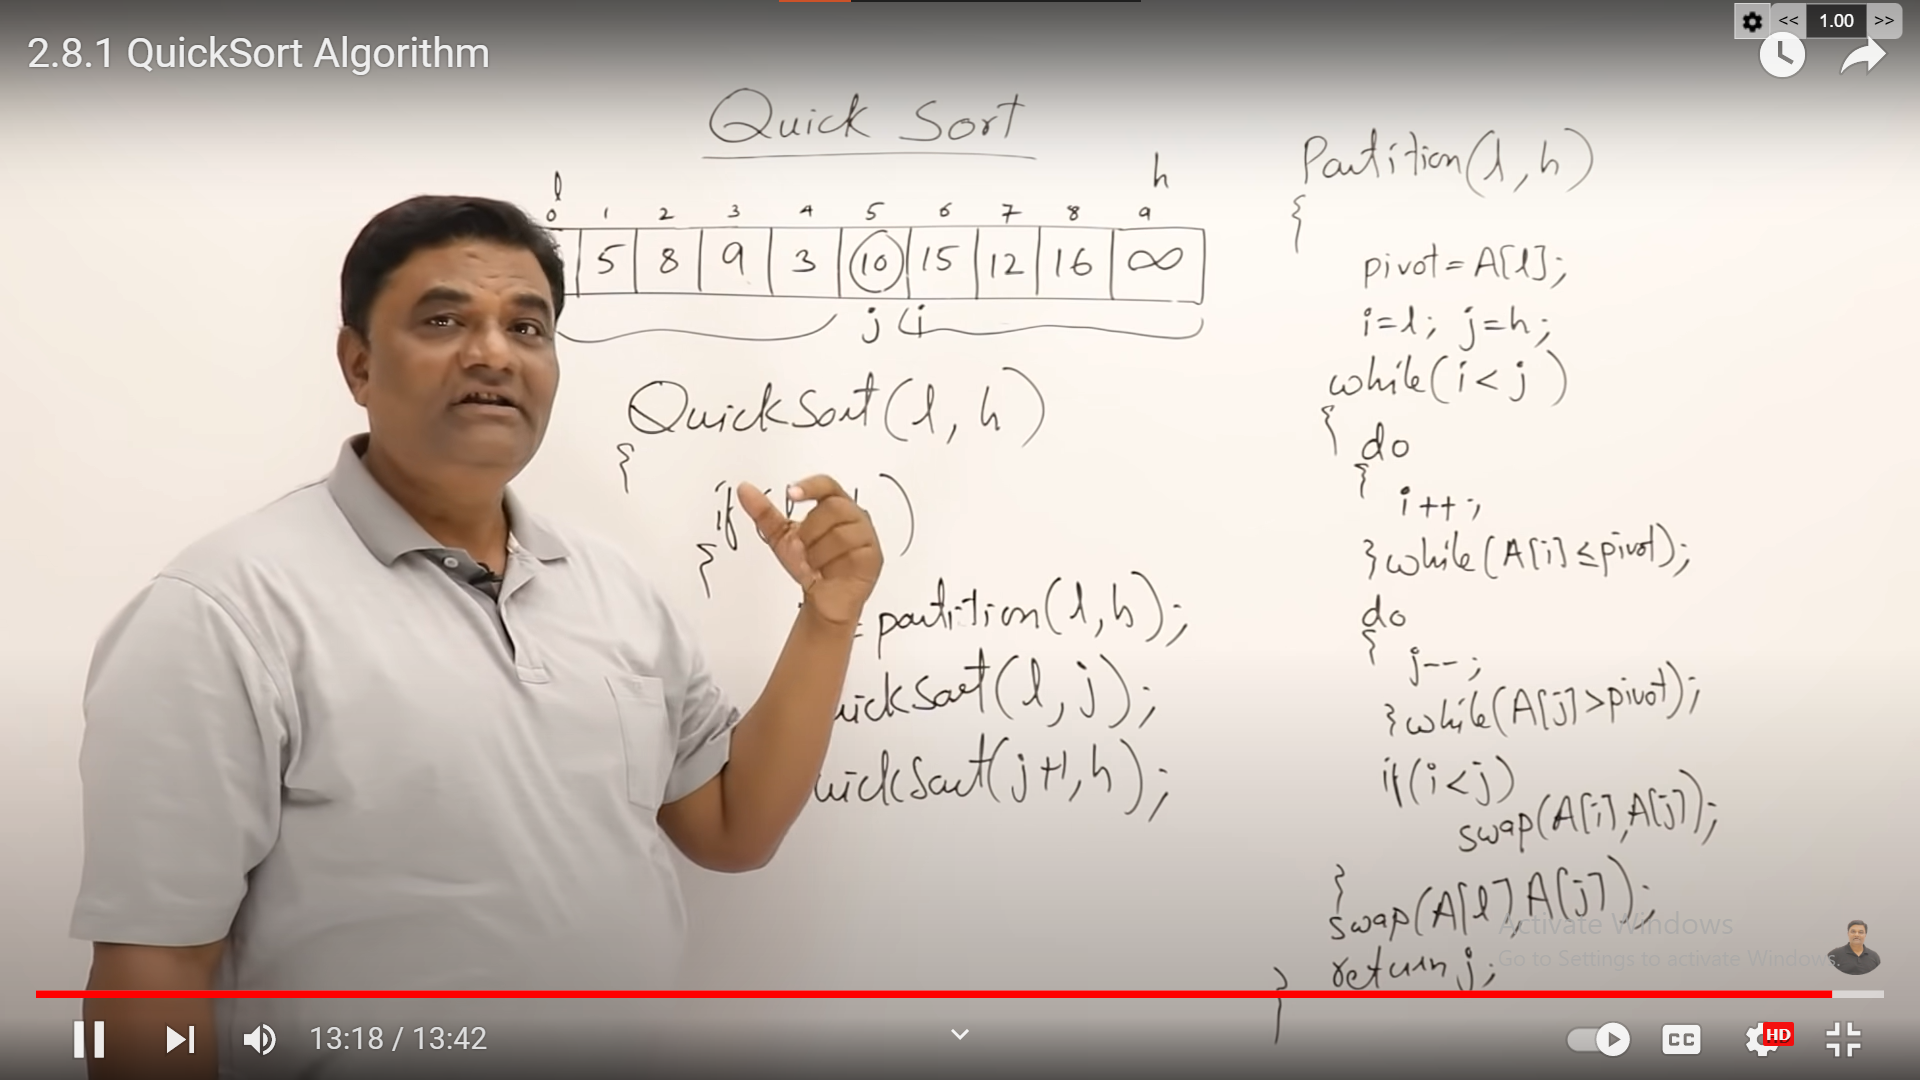 << 1.00 >>
2.8.1 QuickSort Algorithm
Quick Sort
l h
0 1 2 3 4 5 6 7 8 9
5 8 9 3 10 15 12 16 ∞
j i
QuickSort(l, h)
{
if ( )
{
= partition(l, h);
uickSort(l, j);
uickSort(j+1, h);
Partition(l, h)
{
pivot = A[l];
i=l; j=h;
while(i < j)
{ do
{
i++;
} while(A[i] ≤ pivot);
do
{
j--;
} while(A[j] > pivot);
if(i < j)
swap(A[i], A[j]);
}
swap(A[l], A[j]);
return j;
}
Activate Windows
Go to Settings to activate Windows.
13:18 / 13:42
CC
HD